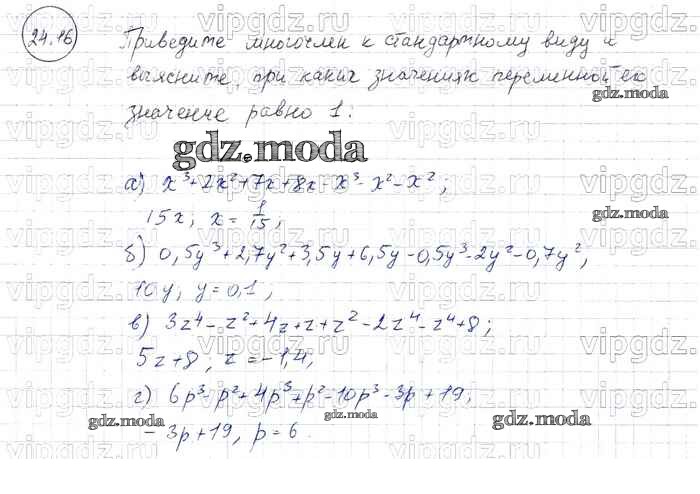 24.16
Приведите многочлен к стандартному виду и
выясните, при каких значениях переменной его
значение равно 1:
gdz.moda
gdz.moda
а) x³+2x²+7x+8x-x³-x²-x²;
15x; x = 1/15;
gdz.moda
б) 0,5y³+2,7y²+3,5y+6,5y-0,5y³-2y²-0,7y²;
10y; y=0,1;
в) 3z⁴-z²+4z+z+z²-2z⁴-z⁴+8;
5z+8; z=-1,4;
gdz.moda
г) 6p³-p²+4p³+p²-10p³-3p+19;
gdz.moda
gdz.moda
gdz.moda
-3p+19, p=6.
vipgdz.ru